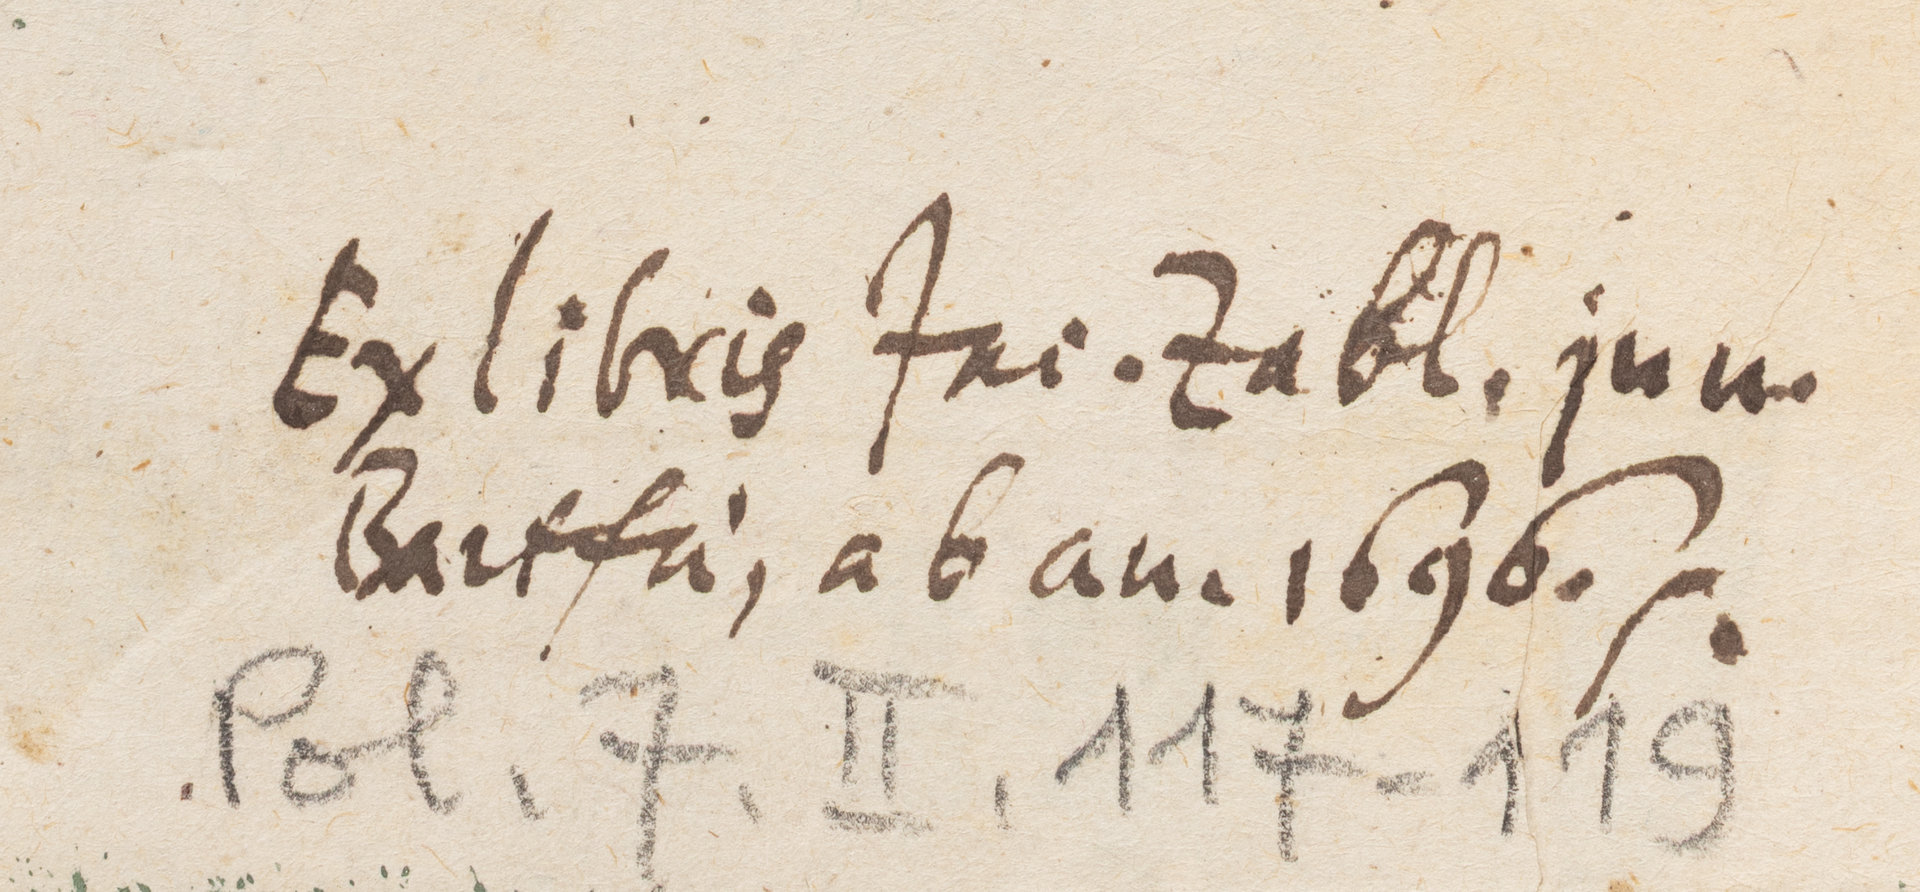 Ex libris Jac. Zabl. jun.
Bartfá, ab an. 1696.
Pol. 7. II. 117-119